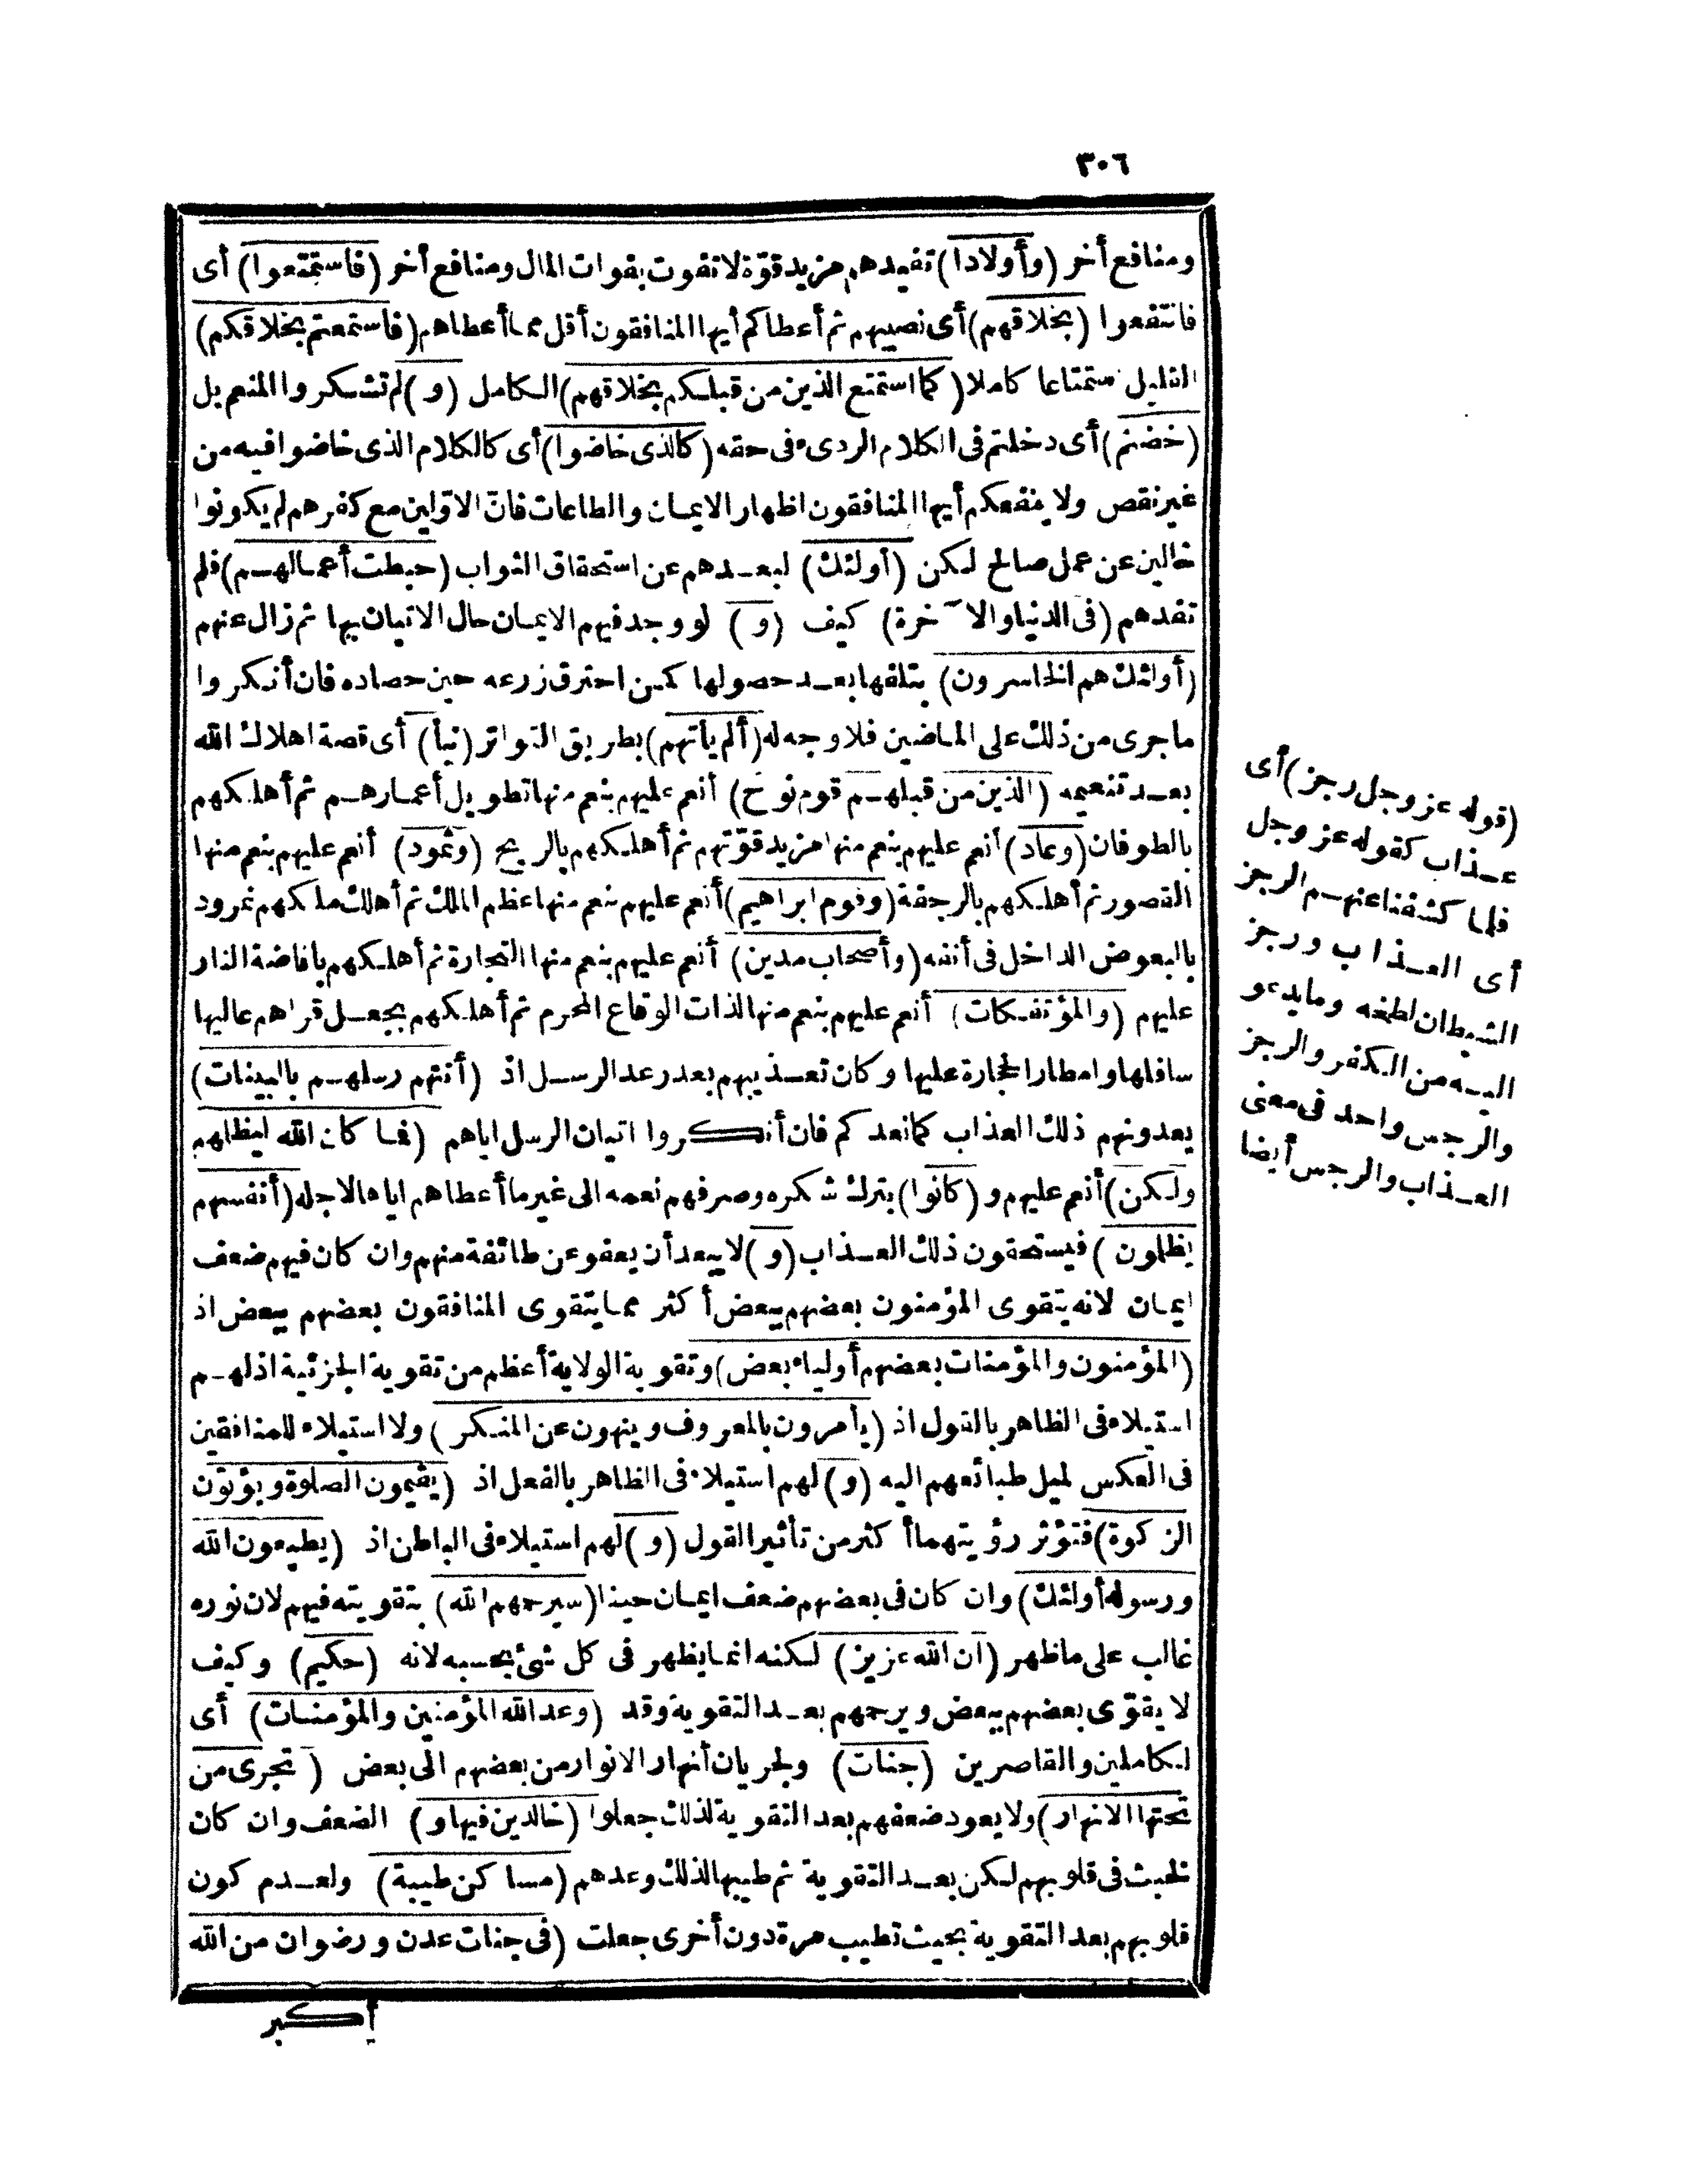 ٣٠٦
ومنافع أخر (وأولادا) تفيدهم مزيد قوّة لا تفوت بفوات المال ومنافع أخر (فاستمتعوا) أى
فانتفعوا (بخلاقهم) أى نصيبهم ثم أعطاكم أيها المنافقون أقل مما أعطاهم (فاستمتعتم بخلاقكم)
القليل ستمتاعا كاملا (كما استمتع الذين من قبلكم بخلاقهم) الكامل (و) لم تشكروا المنعم بل
(خضتم) أى دخلتم فى الكلام الردىء فى حقه (كالذى خاضوا) أى كالكلام الذى خاضوا فيه من
غير نقص ولا ينفعكم أيها المنافقون اظهار الايمان والطاعات فان الاوّلين مع كفرهم لم يكونوا
خالين عن عمل صالح لكن (أولئك) لبعدهم عن استحقاق الثواب (حبطت أعمالهم) فلم
تفدهم (فى الدنيا والآخرة) كيف (و) لو وجد فيهم الايمان حال الاتيان بها ثم زال عنهم
(أولئك هم الخاسرون) بتلفها بعد حصولها كمن احترق زرعه حين حصاده فان أنكروا
ما جرى من ذلك على الماضين فلا وجه له (ألم يأتهم) بطريق التواتر (نبأ) أى قصة اهلاك الله
بعد تنعيمه (الذين من قبلهم قوم نوح) أنعم عليهم بنعم منها تطويل أعمارهم ثم أهلكهم
بالطوفان (وعاد) أنعم عليهم بنعم منها مزيد قوّتهم ثم أهلكهم بالريح (وثمود) أنعم عليهم بنعم منها
القصور ثم أهلكهم بالرجفة (وقوم ابراهيم) أنعم عليهم بنعم منها عظم الملك ثم أهلك ملكهم نمرود
بالبعوض الداخل فى أنفه (وأصحاب مدين) أنعم عليهم بنعم منها التجارة ثم أهلكهم بافاضة النار
عليهم (والمؤتفكات) أنعم عليهم بنعم منها لذات الوقاع المحرم ثم أهلكهم بجعل قراهم عاليها
سافلها وامطار الحجارة عليها وكان تعذيبهم بعد رعد الرسل اذ (أتتهم رسلهم بالبينات)
يعدونهم ذلك العذاب كما نعدكم فان أنكروا اتيان الرسل اياهم (فما كان الله ليظلمهم
ولكن) أنعم عليهم و (كانوا) بترك شكره وصرفهم نعمه الى غير ما أعطاهم اياها لاجله (أنفسهم
يظلمون) فيستحقون ذلك العذاب (و) لا يبعد أن يعفو عن طائفة منهم وان كان فيهم ضعف
ايمان لانه يتقوى المؤمنون بعضهم ببعض أكثر مما يتقوى المنافقون بعضهم ببعض اذ
(المؤمنون والمؤمنات بعضهم أولياء بعض) وتقوية الولاية أعظم من تقوية الجزئية اذ لهم
استيلاء فى الظاهر بالقول اذ (يأمرون بالمعروف وينهون عن المنكر) ولا استيلاء للمنافقين
فى العكس لميل طبائعهم اليه (و) لهم استيلاء فى الظاهر بالفعل اذ (يقيمون الصلوة ويؤتون
الزكوة) فتؤثر رؤيتهما أكثر من تأثير القول (و) لهم استيلاء فى الباطن اذ (يطيعون الله
ورسوله أولئك) وان كان فى بعضهم ضعف ايمان حينا (سيرحمهم الله) بتقويته فيهم لان نوره
غالب على ما ظهر (ان الله عزيز) لكنه انما يظهر فى كل شئ بحسبه لانه (حكيم) وكيف
لا يقوّى بعضهم ببعض ويرحمهم بعد التقوية وقد (وعد الله المؤمنين والمؤمنات) أى
لكاملين والقاصرين (جنات) ولجريان أنهار الانوار من بعضهم الى بعض (تجرى من
تحتها الانهار) ولا يعود ضعفهم بعد التقوية لذلك جعلوا (خالدين فيها و) الضعف وان كان
لخبث فى قلوبهم لكن بعد التقوية ثم طيبها لذلك وعدهم (مساكن طيبة) ولعدم كون
قلوبهم بعد التقوية بحيث تطيب مرة دون أخرى جعلت (فى جنات عدن ورضوان من الله
أكبر
(قوله عز وجل رجز) أى
عذاب كقوله عز وجل
فلما كشفنا عنهم الرجز
أى العذاب ورجز
الشيطان لطخه وما يدعو
اليه من الكفر والرجز
والرجس واحد فى معنى
العذاب والرجس أيضا